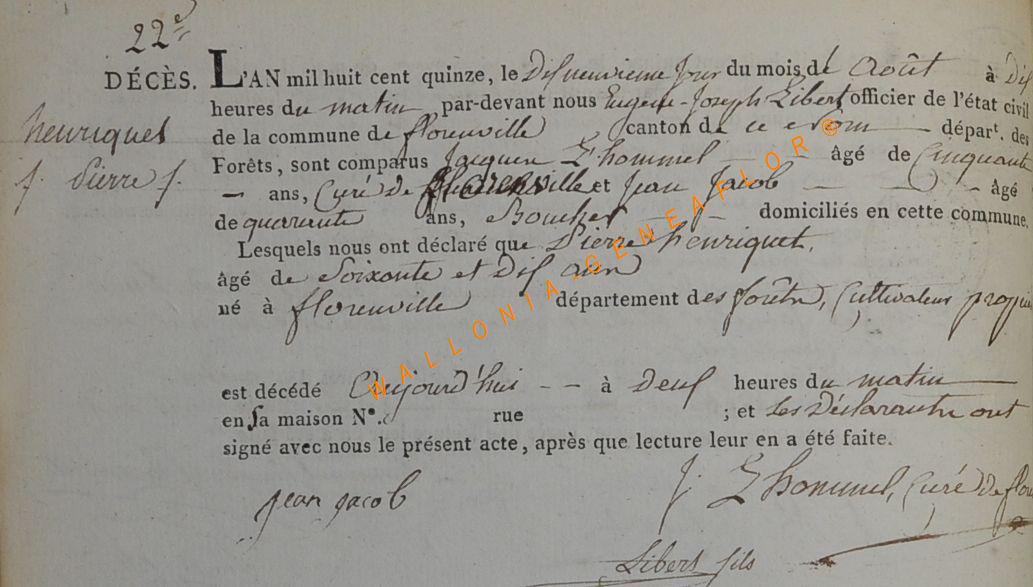 22e
DÉCÈS.
henriquet
f. Pierre f.
L'AN mil huit cent quinze, le Disneuvieme Jour du mois de Août à Dix
heures du matin par-devant nous Eugene-Joseph Libert officier de l'état civil
de la commune de florenville canton de ce nom départ. des
Forêts, sont comparus Jacques L'hommel âgé de Cinquante
ans, Curé de florenville et Jean Jacob âgé
de quarante ans, Boucher domiciliés en cette commune.
Lesquels nous ont déclaré que Pierre henriquet,
âgé de Soixante et Dix ans
né à florenville département des forêts, Cultivateur
est décédé Aujourd'hui à Deux heures du matin
en sa maison N°. rue ; et Les Déclarants ont
signé avec nous le présent acte, après que lecture leur en a été faite.
jean jacob
J. L'hommel, Curé de flo
Libert fils
WALLONIA-GENEAFLOR ©